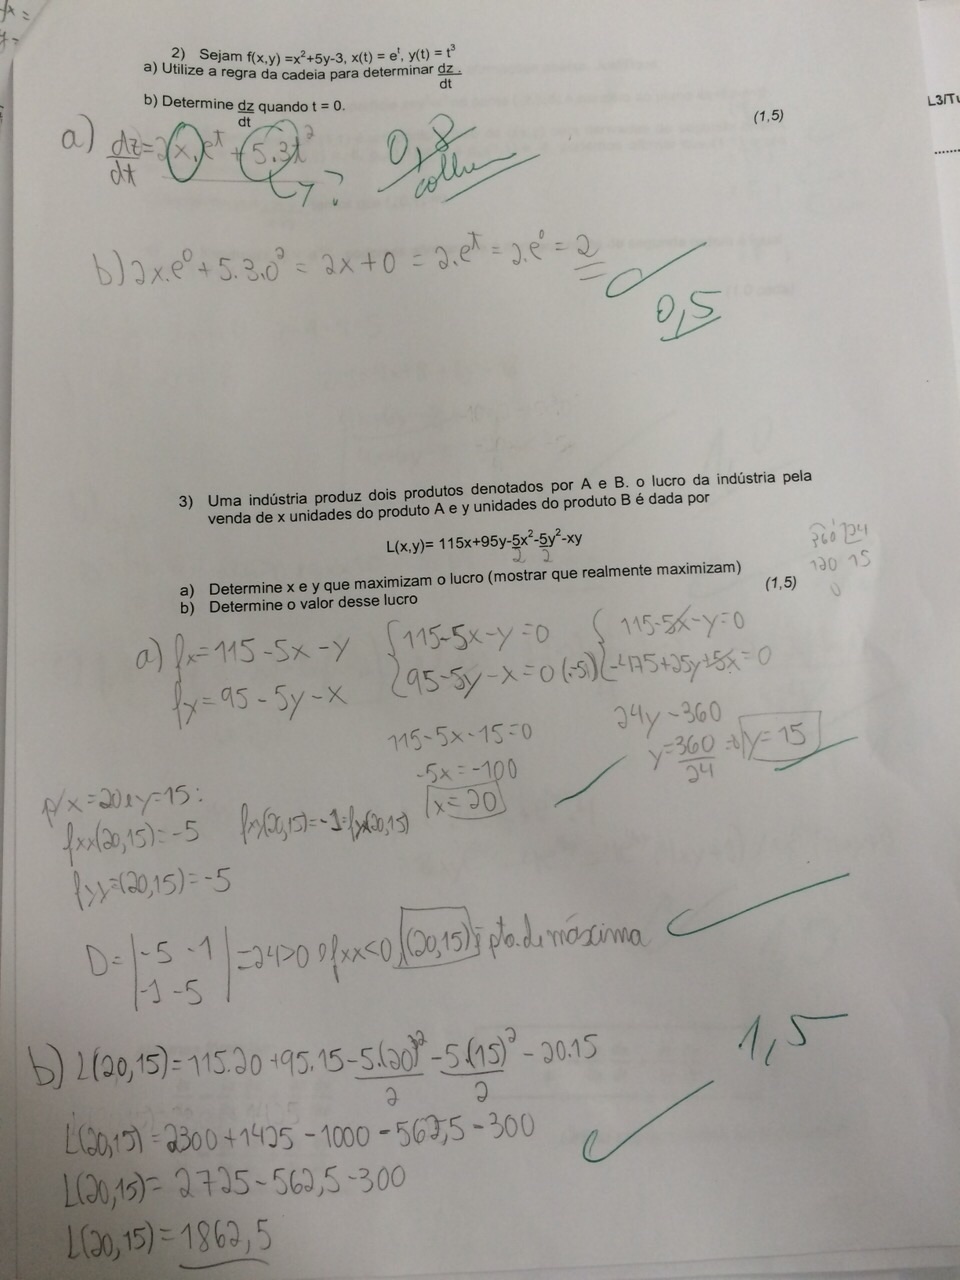 2) Sejam f(x,y) =x²+5y-3, x(t) = eᵗ, y(t) = t³
a) Utilize a regra da cadeia para determinar dz/dt.
b) Determine dz/dt quando t = 0.
(1,5)
L3/Tu
a) dz/dt = 2x.eᵗ + 5.3t²
y?
0,8
b) 2x.e⁰ + 5.3.0² = 2x + 0 = 2.eᵗ = 2.e⁰ = 2
0,5
3) Uma indústria produz dois produtos denotados por A e B. o lucro da indústria pela
venda de x unidades do produto A e y unidades do produto B é dada por
L(x,y)= 115x+95y-5x²/2-5y²/2-xy
360 24
120 15
0
a) Determine x e y que maximizam o lucro (mostrar que realmente maximizam)
b) Determine o valor desse lucro
(1,5)
a) fx = 115 - 5x - y { 115 - 5x - y = 0 { 115 - 5x - y = 0
fy = 95 - 5y - x { 95 - 5y - x = 0 (.-5) { -475 + 25y + 5x = 0
24y - 360
115 - 5x - 15 = 0
y = 360/24 y = 15
-5x = -100
x = 20
p/ x = 20 e y = 15:
fxx(20,15) = -5 fxy(20,15) = -1 = fyx(20,15)
fyy = (20,15) = -5
D = |-5 -1| = 24 > 0 e fxx < 0, (20,15) é pto. de máximo
|-1 -5|
1,5
b) L(20,15) = 115.20 + 95.15 - 5.(20)²/2 - 5.(15)²/2 - 20.15
L(20,15) = 2300 + 1425 - 1000 - 562,5 - 300
L(20,15) = 2725 - 562,5 - 300
L(20,15) = 1862,5